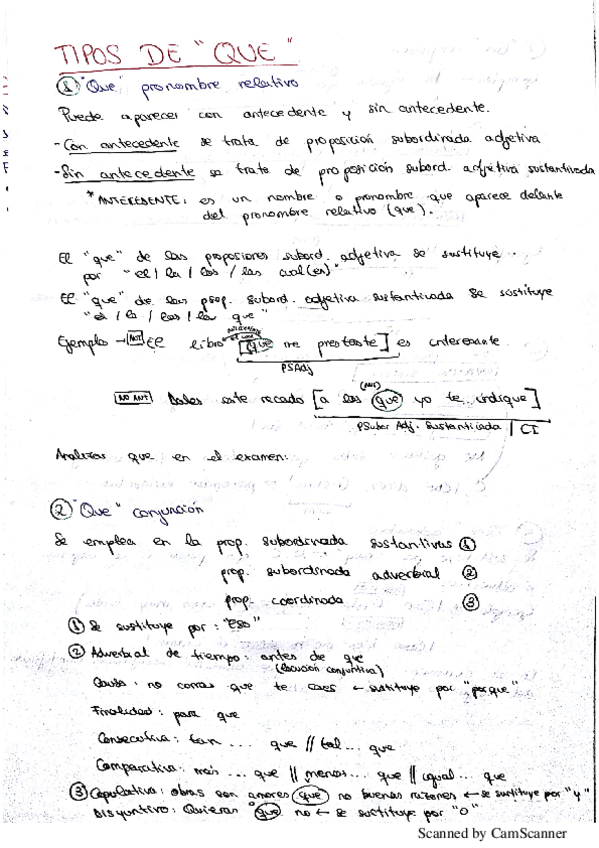 TIPOS DE "QUE"
① "Que" pronombre relativo
Puede aparecer con antecedente y sin antecedente.
- Con antecedente se trata de proposición subordinada adjetiva
- Sin antecedente se trata de proposición subord. adjetiva sustantivada
* ANTECEDENTE: es un nombre o pronombre que aparece delante
del pronombre relativo (que).
El "que" de las proposiones subord. adjetiva se sustituye
por "el / la / los / las cual(es)"
El "que" de las prop. subord. adjetiva sustantivada se sustituye
"el / la / los / las que"
Ejemplo → ANT El libro [que me prestaste] es interesante
PSAdj
(ANT)
NO ANT Dales este recado [a los que yo te indique]
PSubor Adj. Sustantivada | CI
Analizar que en el examen:
② "Que" conjunción
Se emplea en la prop. subordinada sustantivas ①
prop. subordinada adverbial ②
prop. coordinada ③
① Se sustituye por: "Eso"
② Adverbial de tiempo: antes de que
(locución conjuntiva)
Causa: no corras que te caes ← sustituye por "porque"
Finalidad: para que
Consecutiva: tan ... que // tal ... que
Comparativa: más ... que // menos... que // igual ... que
③ Copulativa: obras son amores que no buenas razones ← se sustituye por "y"
Disyuntivo: Quieras que no ← se sustituye por "o"
Scanned by CamScanner